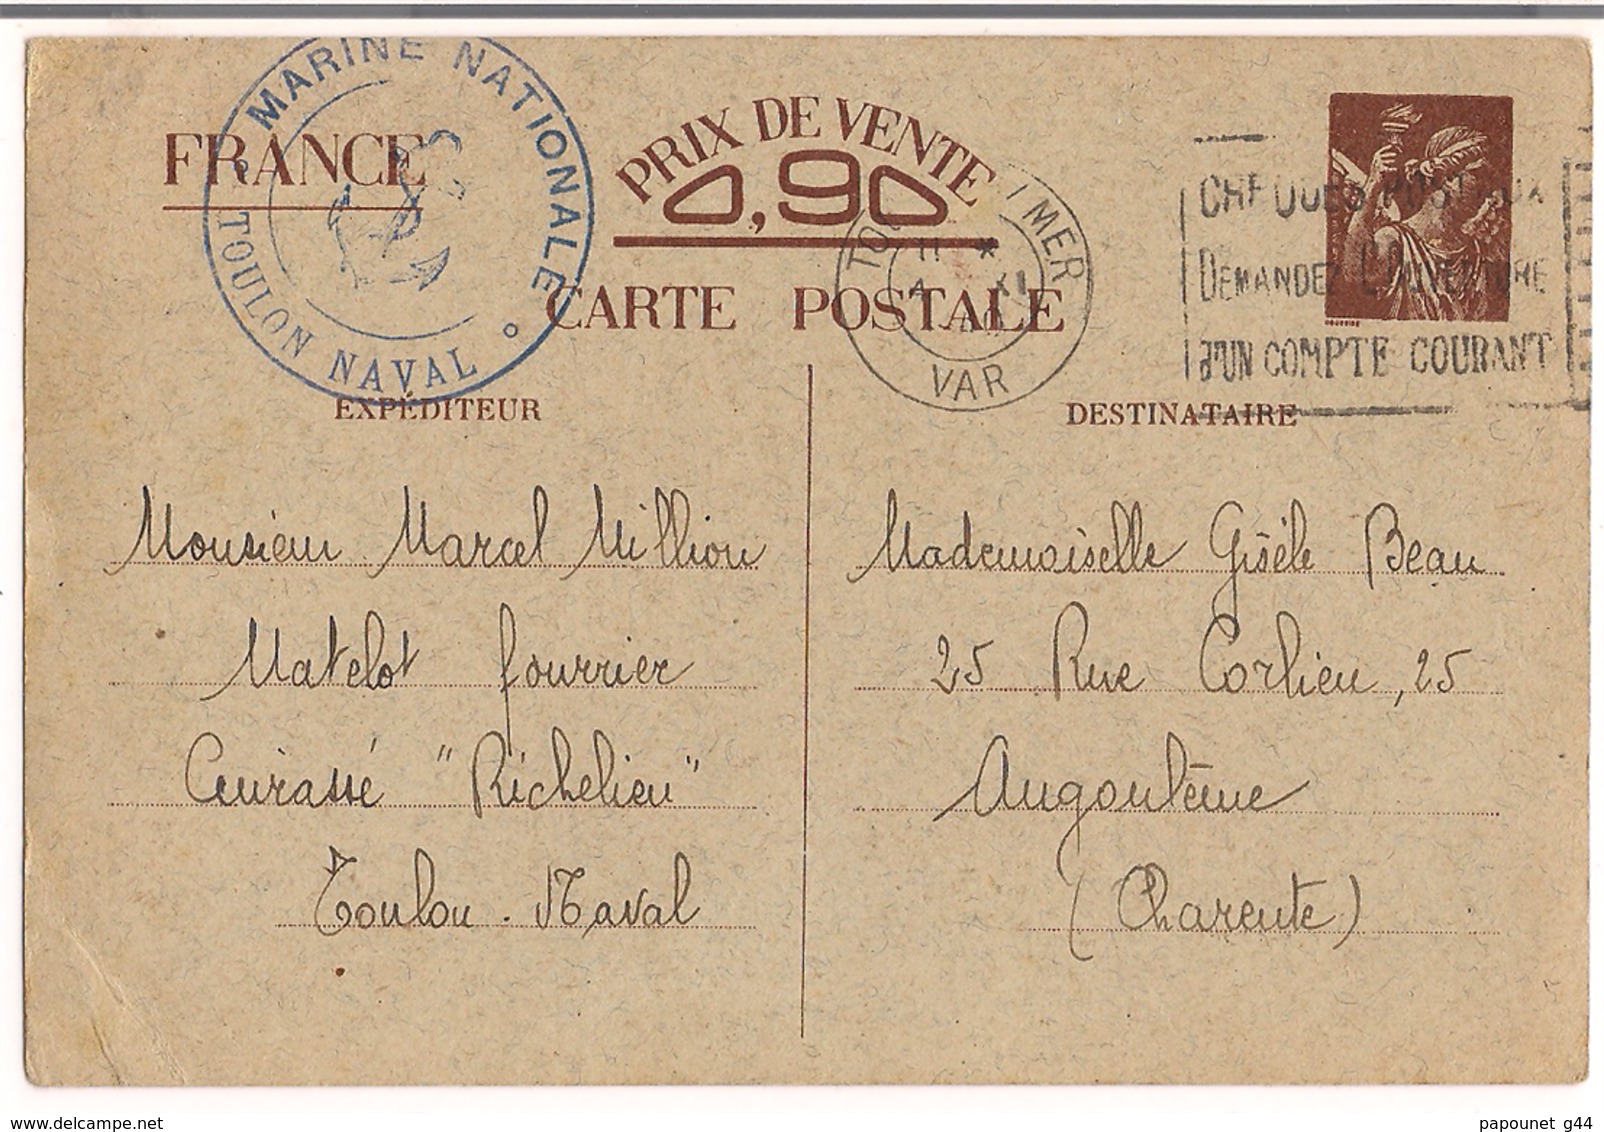 MARINE NATIONALE
TOULON NAVAL
FRANCE
PRIX DE VENTE
0,90
CARTE POSTALE
MER
11 *
XI
VAR
CHEQUES POSTAUX
DEMANDEZ L'OUVERTURE
d'UN COMPTE COURANT
EXPÉDITEUR
Monsieur Marcel Million
Matelot fourrier
Cuirassé "Richelieu"
Toulon-Naval
DESTINATAIRE
Mademoiselle Gisèle Beau
25 Rue Corlieu, 25
Angoulême
(Charente)
https://www.delcampe.net
papounet g44